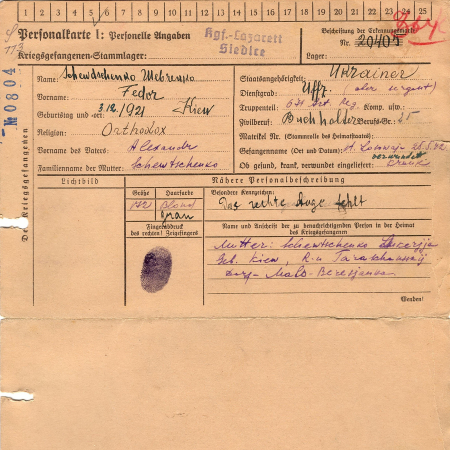 1 2 3 4 5 6 7 8 9 10 11 12 13 14 15 16 17 18 19 20 21 22 23 24 25
Personalkarte I: Personelle Angaben
Kgf.-Lazarett
Siedlce
Beschriftung der Erkennungsmarke
Nr. 20405
Kriegsgefangenen-Stammlager:
Lager:
№ 0804
Des Kriegsgefangenen
Name: Schewdschenko
Vorname: Fedor
Geburtstag und -ort: 3.12.1921 Kiew
Religion: Orthodox
Vorname des Vaters: Alexander
Familienname der Mutter: Schewtschenko
Staatsangehörigkeit: Ukrainer
Dienstgrad: Uffz.
Truppenteil: Komp. usw.:
Zivilberuf: Buchhalter Berufs-Gr.: 25
Matrikel Nr. (Stammrolle des Heimatstaates):
Gefangennahme (Ort und Datum):
verwundet
Ob gesund, krank, verwundet eingeliefert:
Lichtbild
Nähere Personalbeschreibung
Größe Haarfarbe
172 Blond
Besondere Kennzeichen:
Das rechte Auge fehlt
Fingerabdruck
des rechten Zeigefingers
Name und Anschrift der zu benachrichtigenden Person in der Heimat
des Kriegsgefangenen
Mutter: Schewtschenko
Geb. Kiew,
Dorf Malo-Beresjanka
Wenden!